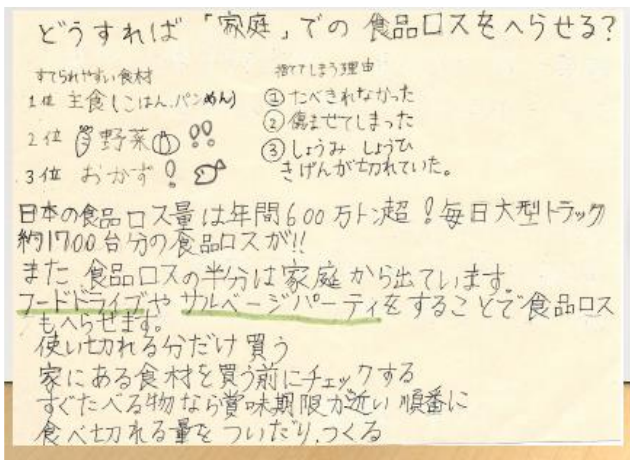 どうすれば「家庭」での食品ロスをへらせる?
すてられやすい食材
1位 主食(ごはん、パンめん)
2位 野菜
3位 おかず
捨ててしまう理由
①たべきれなかった
②傷ませてしまった
③しょうみ しょうひ
きげんが切れていた。
日本の食品ロス量は年間600万トン超!毎日大型トラック
約1700台分の食品ロスが!!
また 食品ロスの半分は家庭から出ています。
フードドライブや サルベージパーティをすることで食品ロス
もへらせます。
使い切れる分だけ買う
家にある食材を買う前にチェックする
すぐたべる物なら賞味期限が近い順番に
食べ切れる量をついだり、つくる